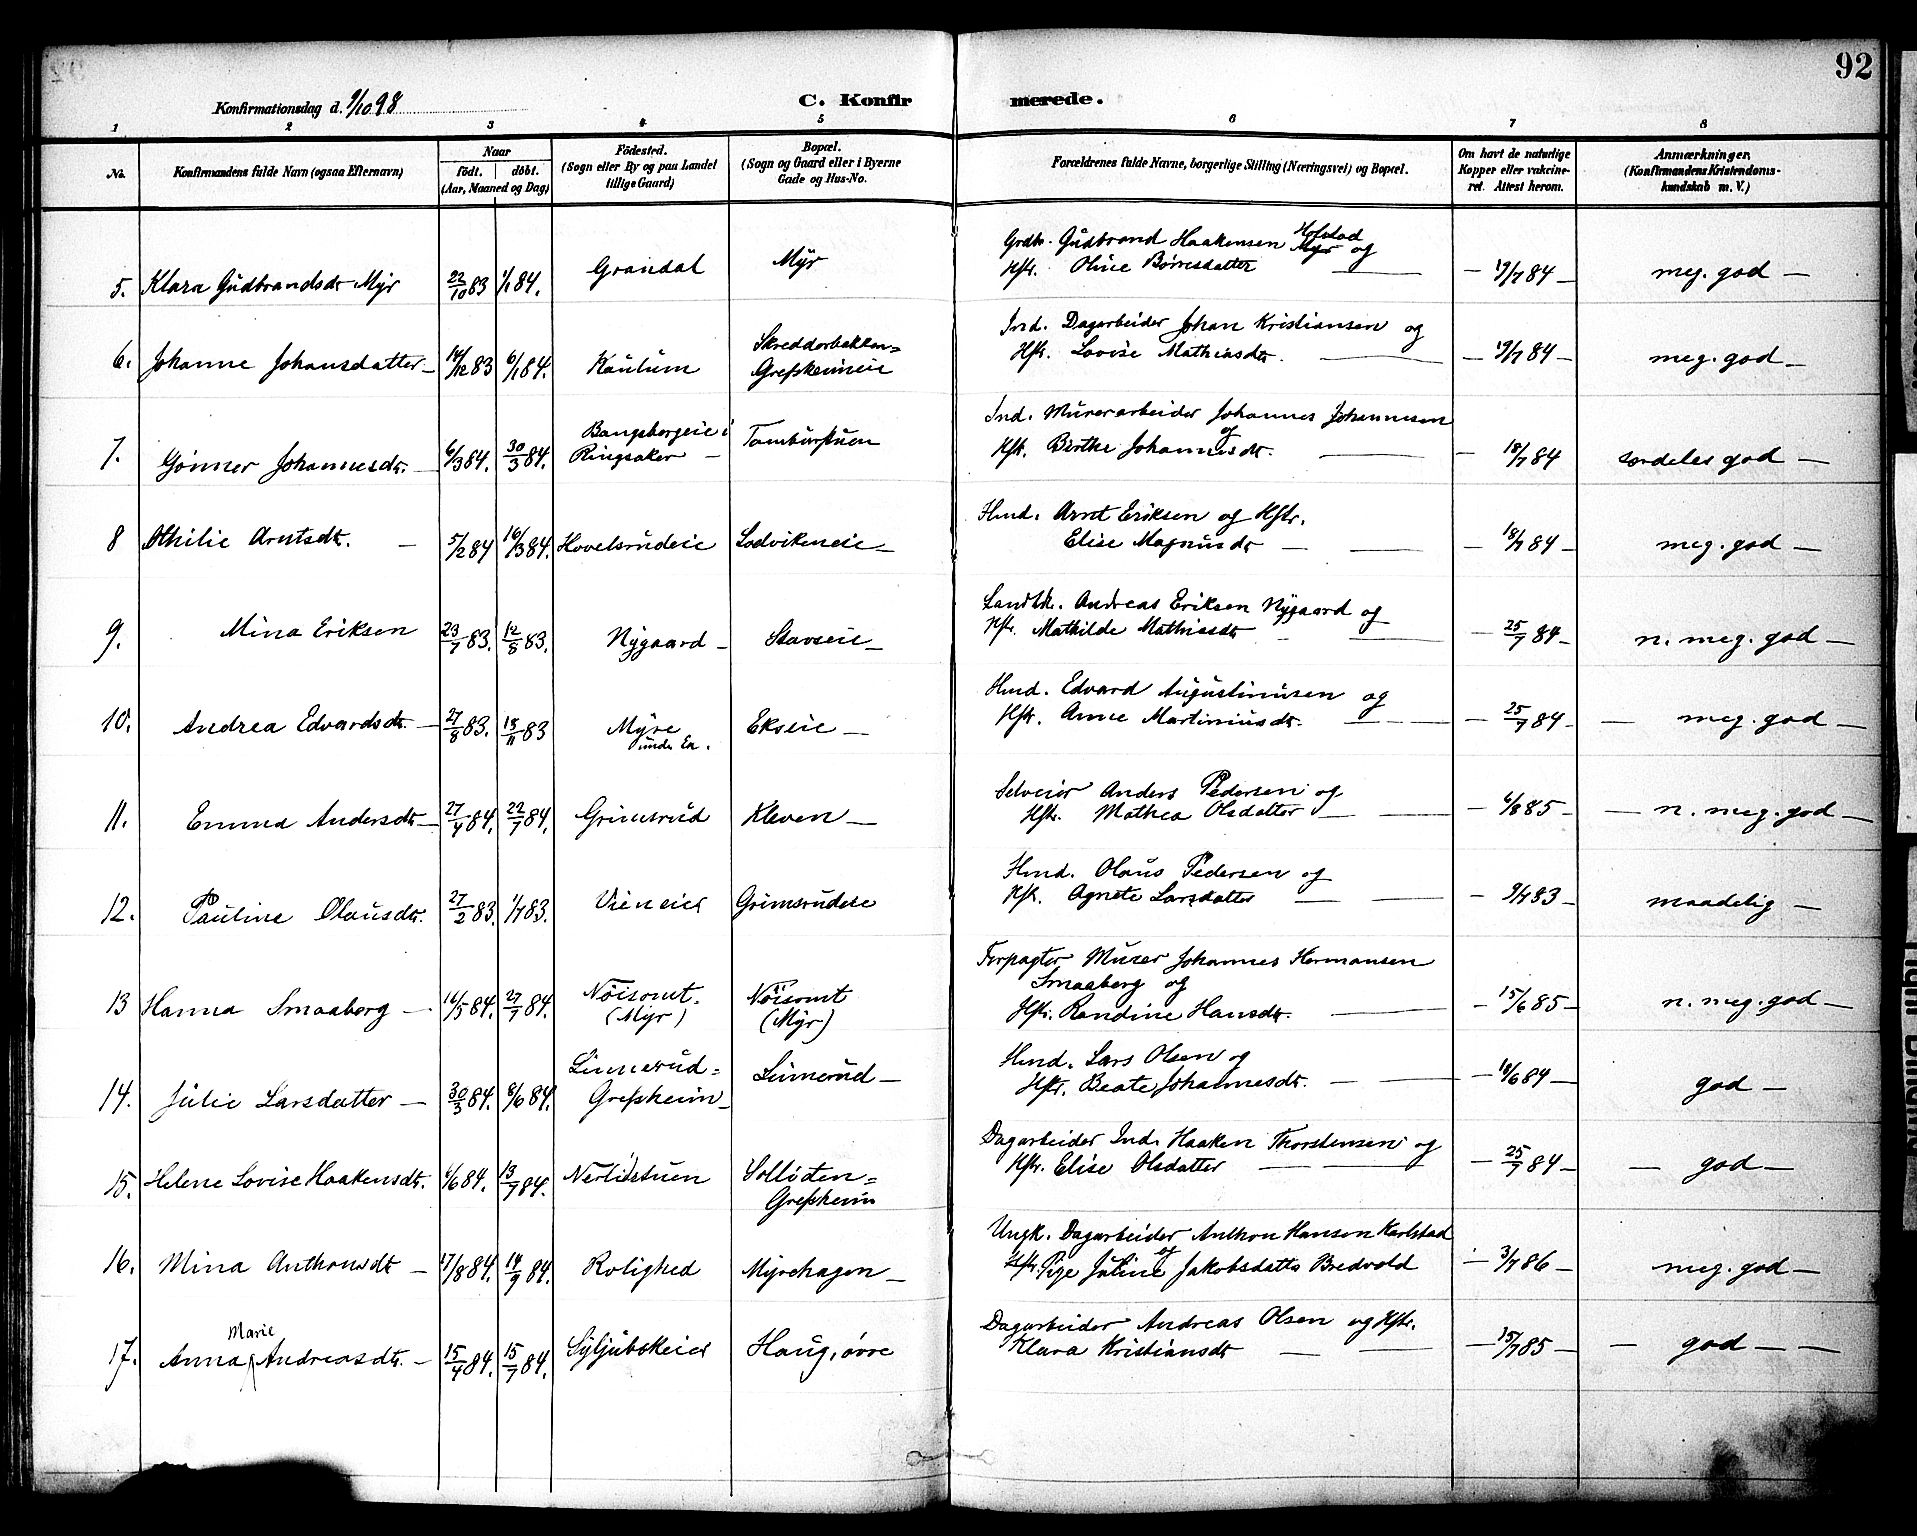 92
Konfirmationsdag d. 9/10 98
C. Konfirmerede.
1 2 3 4 5 6 7 8
No.
Konfirmandens fulde Navn (ogsaa Efternavn)
Naar
födt. döbt.
(Aar, Maaned og Dag)
Födested.
(Sogn eller By og paa Landet
tillige Gaard)
Bopæl.
(Sogn og Gaard eller i Byerne
Gade og Hus-No.
Forældrenes fulde Navne, borgerlige Stilling (Næringsvei) og Bopæl.
Om havt de naturlige
Kopper eller vakcine-
ret. Attest herom.
Anmærkninger.
(Konfirmandens Kristendoms-
kundskab m. V.)
5. Klara Gudbrandsdtr Myr 22/10 83 1/1 84. Grandal Myr
Grdbr. Gudbrand Haakensen Hofstad Myr og
Hstr. Oline Börresdatter — 19/7 84 — meg. god —
6. Johanne Johansdatter — 14/12 83 6/1 84. Kaulum
Skreddorbakken=
Grefsheimeie
Ind. Dagarbeider Johan Kristiansen og
Hstr. Lovise Mathiasdtr. — 19/7 84 — meg. god —
7. Gönner Johannesdtr. — 6/3 84. 30/3 84.
Bangsbergeie i
Ringsaker —
Tomburstuen
Ind. Murerarbeider Johannes Johannesen
og
Hstr. Birthe Johannesdtr. — 18/7 84 særdeles god —
8 Othilie Arntsdtr. — 5/2 84 16/3 84. Hovelsrudeie Lodvikeneie —
Hmd. Arnt Eriksen og Hstr.
Elise Magnusdtr — 18/7 84 — meg. god —
9. Mina Eriksen 23/7 83. 12/8 83. Nygaard — Stavseie —
Landhdl. Andreas Eriksen Nygaard og
Hstr. Mathilde Mathiasdtr — 25/7 84 — n. meg. god —
10. Andrea Edvardsdtr — 27/8 83. 18/11 83
Myre
under Ek.
Ekseie —
Hmd. Edvard Augustinusen og
Hstr. Anne Martiniusdtr. — 25/7 84 — meg. god —
11. Emma Andersdtr — 27/4 84. 22/7 84. Grimsrud Kleven —
Selveier Anders Pedersen og
Hstr. Mathea Olsdatter — 6/8 85 — n. meg. god —
12. Pauline Olausdtr. 27/2 83. 1/7 83. Vieneiet Grimsrudeie
Hmd. Olaus Pedersen og
Hstr. Agnete Larsdatter — 9/7 83 — maadelig —
13 Hanna Smaaberg — 16/5 84. 27/7 84.
Nöisomt.
(Myr)
Nöisomt
(Myr)
Forpagter Murer Johannes Hermansen
Smaaberg og
Hstr. Randine Hansdtr. — 15/6 85 — n. meg. god —
14. Julie Larsdatter — 30/3 84. 8/6 84.
Linnerud=
Grefsheim —
Linnerud —
Hmd. Lars Olsen og
Hstr. Beate Johannesdtr. — 18/6 84 — god —
15. Helene Lovise Haakensdtr. 6/6 84. 13/7 84. Nerlistuen
Solloten=
Grefsheim
Dagarbeider Ind. Haaken Thorstensen og
Hstr. Elise Olsdatter — 25/7 84 — god —
16. Mina Anthonsdtr — 17/8 84. 14/9 84. Rolighed Myrehagen —
Ungk. Dagarbeider Anthon Hansen Karlstad
og
Pige Juline Jakobsdatter Bredvold — 3/7 86 — meg. god —
Marie
17. Anna Andreasdtr. — 15/4 84. 15/7 84. Syljubskeiet Haug, övre
Dagarbeider Andreas Olsen og Hstr.
Klara Kristiansdtr — 15/7 85 — god —